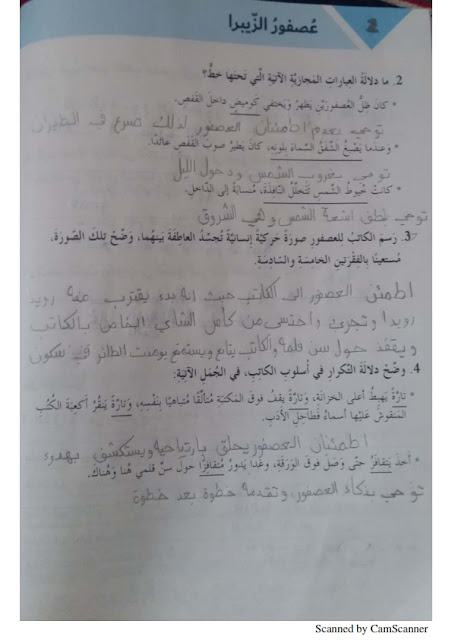 2 عُصفورُ الزّيبرا
2. ما دلالةُ العباراتِ المَجازيّةِ الآتيةِ الَّتي تَحتَها خطٌّ؟
* كانَ ظِلُّ العُصفورَيْنِ يَظهرُ ويَختفي كَوميضٍ داخلَ القَفصِ.
توحي بعدم اطمئنان العصفور لذلك تسرع في الطيران
* وعندَما يَصْبُغُ الشَّفَقُ السَّماءَ بلونِهِ، كانَ يَطيرُ صوبَ القَفصِ عائدًا.
توحي بغروب الشمس ودخول الليل
* كانتْ خُيوطُ الشَّمسِ تَتخلَّلُ النّافِذةَ، مُنسابةً إلى الدّاخلِ.
توحي اشعة الشمس وهي الشروق
3. رَسمَ الكاتبُ للعصفورِ صورةً حَركيّةً إنسانيّةً تُجسِّدُ العاطِفةَ بَينهُما، وَضِّحْ تِلكَ الصّورَةَ،
مُستعينًا بالفِقرَتينِ الخامسةِ والسّادسَةِ.
اطمئن العصفور الى الكاتب حيث انه بدء يقترب منه رويد
رويدا وتجرئ واحتسى من كأس الشاي الخاص بالكاتب
ويقفد حول سن قلمه والكاتب يتابع ويستمتع الطائر في سكون
4. وضِّحْ دلالةَ التّكرارِ في أسلوبِ الكاتبِ، في الجُمَلِ الآتيَةِ:
* تارَةً يَهبِطُ أعلى الخزانةِ، وتارَةً يقِفُ فوقَ المَكتبَةِ مُتألِّقًا مُتباهيًا بِنَفْسِهِ، وَتارَةً يَنقُرُ أكعبةَ الكُتُبِ
المَنقوشِ عَلَيها أسماءُ فَطاحِلِ الأدَبِ.
اطمئنان العصفور يحلق بارتياحية ويستكشف بهدوء
* أخذَ يَتقافزُ حتّى وَصلَ فوقَ الوَرَقَةِ، وغَدا يَدورُ مُتقافِزًا حولَ سِنِّ قَلَمي هُنا وَهُناكَ.
توحي بذكاء العصفور وتقدمه خطوة بعد خطوة
Scanned by CamScanner